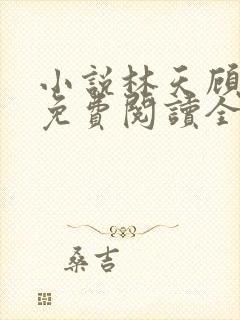 小說林天顧
免費閱讀全
桑吉